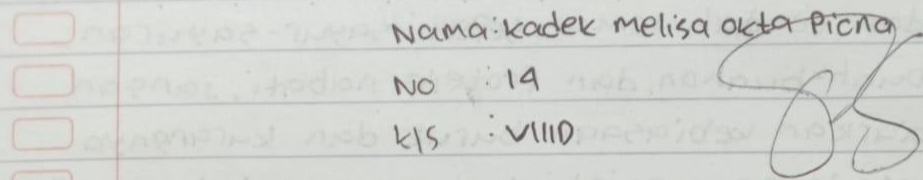 Nama: Kadek melisa okta Piena
NO : 14
k/s : VIIID
85